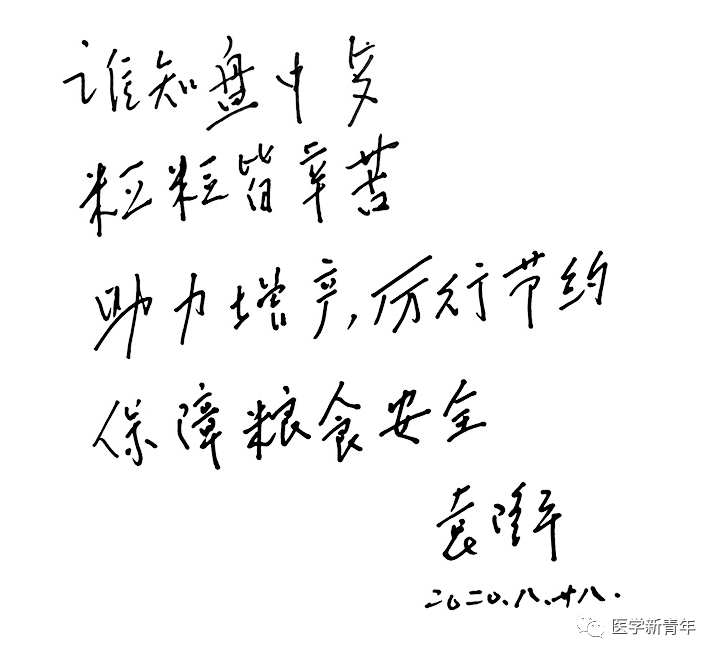 谁知盘中歺
粒粒皆辛苦
助力增产,厉行节约
保障粮食安全
袁隆平
二〇二〇.八.廿八.
医学新青年